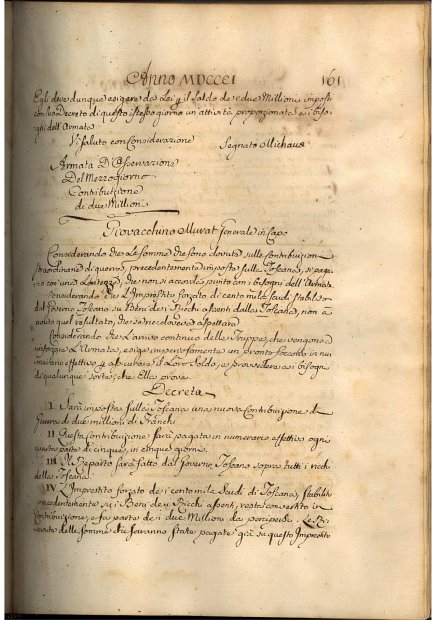 Anno MDCCCI 161
Egli deve dunque esigere da Lei p il saldo de i due Millioni imposti
con suo Decreto di questo stesso giorno un attività proporzionata a i biso-
gni dell'Armata
Vi saluto con considerazione Segnato Michaux
Armata D'Osservazione
Del Mezzogiorno
Contribuzione
di due Millioni
Giovacchino Murat Generale in Capo
Considerando che La somma che sono dovute sulle contribuzioni
straordinarie di guerra, precedentemente imposte sulla Toscana, si paga-
no con una Lentezza, che non si accorda punto con i bisogni dell'Armata
Considerando che L'Imprestito forzato di cento mila scudi stabilito
dal Governo Toscano su i Beni de i Ricchi assenti dalla Toscana, non à
avuto quel resultato, che se ne doveva aspettare
Considerando che L'arrivo continuo delle Truppe, che vengono a
rinforzare L'Armata, esige imperiosamente un pronto soccorso in nu-
merario effettivo p assicurare il Loro Soldo, e provvedere a i bisogni
di qualunque sorte, che Elle prova
Decreta
I Sarà imposta sulla Toscana una nuova Contribuzione di
Guerra di due millioni di Franchi
II Questa Contribuzione sarà pagata in numerario effettivo ogni
quarta parte di cinque, in cinque giorni
III Il Reparto sarà fatto dal Governo Toscano sopra tutti i ricchi
della Toscana
IV L'Imprestito forzato de i cento mila Scudi di Toscana stabilito
precedentemente su i Beni de i Ricchi assenti, resta convertito in
Contribuzione, e fà parte de i due Millioni da percipersi. Le Ri-
cevute delle somme che saranno state pagate già su questo Imprestito